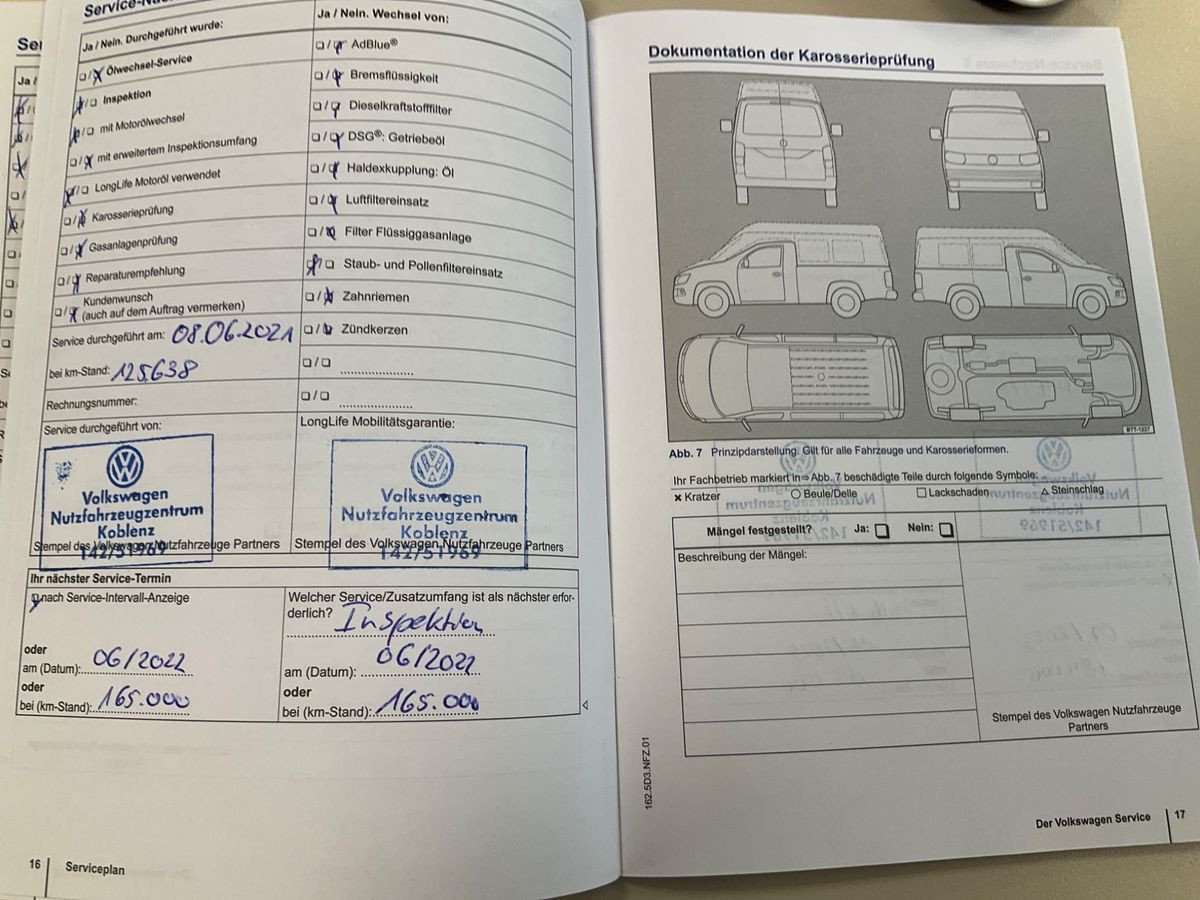 Ja / Nein. Durchgeführt wurde:
❑/❑ Ölwechsel-Service
❑/❑ Inspektion
❑/❑ mit Motorölwechsel
❑/❑ mit erweitertem Inspektionsumfang
❑/❑ LongLife Motoröl verwendet
❑/❑ Karosserieprüfung
❑/❑ Gasanlagenprüfung
❑/❑ Reparaturempfehlung
❑/❑ Kundenwunsch
(auch auf dem Auftrag vermerken)
Service durchgeführt am: 08.06.2021
bei km-Stand: 125638
Rechnungsnummer:
Ja / Nein. Wechsel von:
❑/❑ AdBlue®
❑/❑ Bremsflüssigkeit
❑/❑ Dieselkraftstofffilter
❑/❑ DSG®: Getriebeöl
❑/❑ Haldexkupplung: Öl
❑/❑ Luftfiltereinsatz
❑/❑ Filter Flüssiggasanlage
❑/❑ Staub- und Pollenfiltereinsatz
❑/❑ Zahnriemen
❑/❑ Zündkerzen
❑/❑ ....................
❑/❑ ....................
Service durchgeführt von:
Volkswagen
Nutzfahrzeugzentrum
Koblenz
142/51969
Stempel des Volkswagen Nutzfahrzeuge Partners
LongLife Mobilitätsgarantie:
Volkswagen
Nutzfahrzeugzentrum
Koblenz
142/51969
Stempel des Volkswagen Nutzfahrzeuge Partners
Ihr nächster Service-Termin
❑ nach Service-Intervall-Anzeige
oder
am (Datum): 06/2022
oder
bei (km-Stand): 165.000
Welcher Service/Zusatzumfang ist als nächster erfor-
derlich? Inspektion
am (Datum): 06/2022
oder
bei (km-Stand): 165.000
16 Serviceplan
Dokumentation der Karosserieprüfung
BTT-1227
Abb. 7 Prinzipdarstellung. Gilt für alle Fahrzeuge und Karosserieformen.
Ihr Fachbetrieb markiert in ⇒ Abb. 7 beschädigte Teile durch folgende Symbole:
× Kratzer ○ Beule/Delle □ Lackschaden △ Steinschlag
Mängel festgestellt? Ja: ❑ Nein: ❑
Beschreibung der Mängel:
Stempel des Volkswagen Nutzfahrzeuge
Partners
162.5D3.NFZ.01
Der Volkswagen Service 17